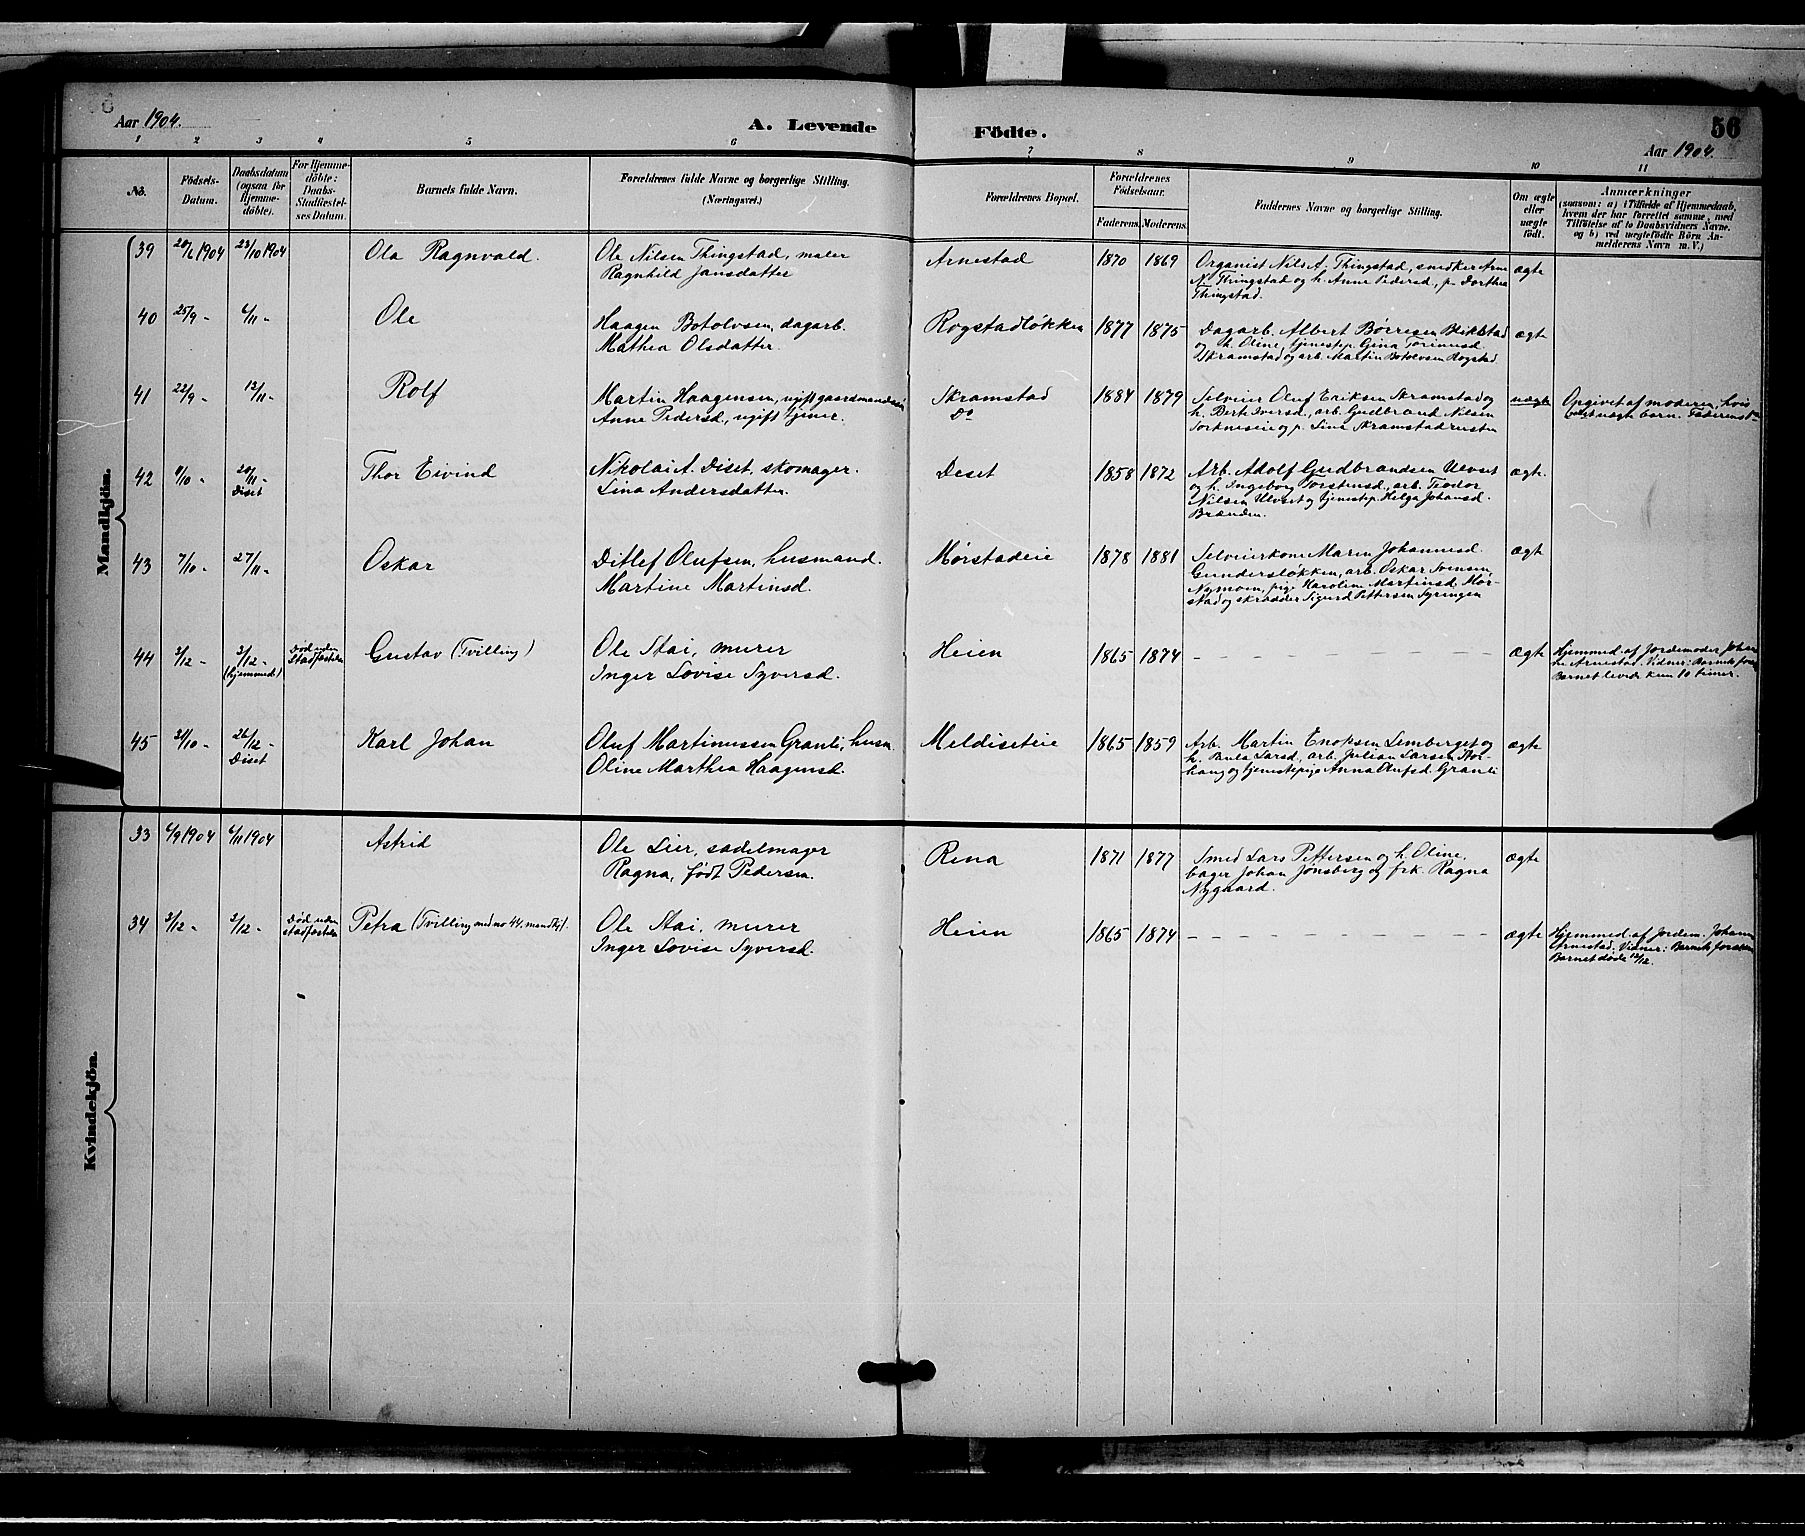 Aar 1904.
A. Levende Födte.
56
Aar 1904.
1 2 3 4 5 6 7 8 9 10 11
No.
Födsels-
Datum.
Daabsdatum
(ogsaa for
Hjemme-
döbte).
For Hjemme-
döbte:
Daabs-
Stadfæstel-
ses Datum.
Barnets fulde Navn.
Forældrenes fulde Navne og borgerlige Stilling.
(Næringsvei.)
Forældrenes Bopæl.
Forældrenes
Födselsaar.
Faderens. Moderens.
Faddernes Navne og borgerlige Stilling.
Om ægte
eller
uægte
födt.
Anmærkninger
(saasom: a) i Tilfælde af Hjemmedaab,
hvem der har forrettet samme, med
Tilföielse af to Daabsvidners Navne.
og b) ved uægtefödte Börn An-
melderens Navn m. V.)
Mandkjön.
39 20/6 1904 23/10 1904 Ola Ragnvald.
Ole Nilsen Thingstad, maler
Ragnhild Jansdatter
Arnestad 1870 1869
Organist Nils A. Thingstad, snedker Arne
N. Thingstad og h. Anne Pedersd, p. Dorthea
Thingstad.
ægte
40 25/9 - 6/11 - Ole
Haagen Botolvsen, dagarb.
Mathea Olsdatter
Rogstadløkken 1877 1875
Dagarb. Albert Børresen Blikstad
og h. Oline, tjenestep. Gina
Skramstad og arb. Martin Botolvsen Rogstad
ægte
41 22/9 - 12/11 - Rolf
Martin Haagensen, ugift gaardmandssøn
Anne Pedersd, ugift tjener.
Skramstad 1884 1879
Do
Selveier Oluf Eriksen Skramstad og
h. Berte Iversd, arb. Gudbrand Nilsen
og p. Line Skramstadrusten
uægte
Opgivet af moderen, hvis
uægte barn.
42 9/10 - 20/11 - Diset Thor Eivind
Nikolai A. Diset, skomager.
Lina Andersdatter.
Deset 1858 1872
Arb. Adolf Gudbrandsen Ulvset
og h. Ingeborg Torstensd, arb. Teodor
Nilsen Ulvset og tjenestep. Helga Johansd.
Brænden.
ægte.
43 7/10 - 27/11 - Oskar
Ditlef Olufsen, husmand.
Martine Martinsd.
Mørstadeie 1878 1881
Selveierkone Maren Johannesd.
Gundersløkken, arb. Oskar Svensen
Nymoen, pige Karoline Martinsd. Mør-
stad og skrædder Sigurd Pettersen Syringen
ægte
44 3/12 - 3/12 - (hjemmed.) Død uden
Stadfæstelse
Gustav (Tvilling)
Ole Stai, murer
Inger Lovise Syversd.
Heien 1865 1874
ægte
Hjemmed. af Jordemoder Johan-
ne Arnestad. Vidner:
Barnet levede kun 10 timer.
45 31/10 - 26/12 - Diset Karl Johan
Oluf Martinussen Granli, husm.
Oline Marthea Haagensd.
Meldiseteie 1865 1859
Arb. Martin Enoksen Lemberget og
h. Paula Larsd, arb. Julian Larsen Stor-
haug og tjenestepige Anna Olufsd. Granli
ægte
Kvindekjön.
33 6/9 1904 6/11 1904 Astrid
Ole Lier, sadelmager
Ragna, født Pedersen.
Rena 1871 1877
Smed Lars Pettersen og h. Oline,
bager Johan Jønsberg og frk. Ragna
Nygaard.
ægte
34 3/12 - 3/12 - Død uden
Stadfæstelse
Petra (Tvilling med no 44, mandkj).
Ole Stai, murer
Inger Lovise Syversd.
Heien 1865 1874
ægte
Hjemmed. af Jordem. Johanne
Arnestad. Vidner:
Barnet døde 12/12.